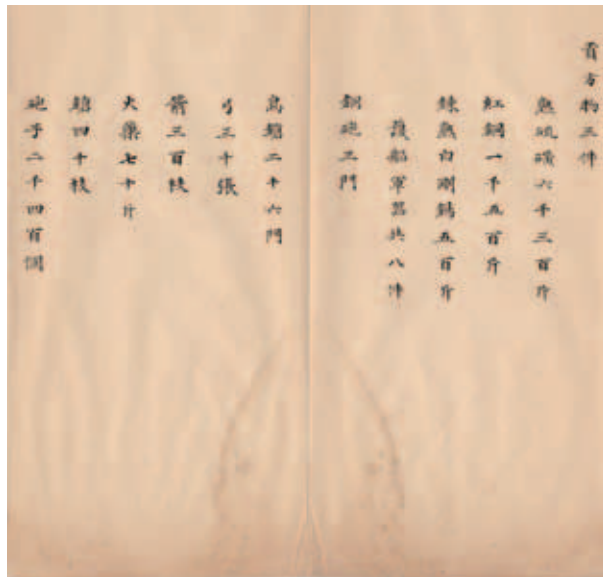 貢方物三件
熟硫磺六千三百斤
紅銅一千五百斤
煉熟白剛錫五百斤
護船軍器共八件
銅砲三門
鳥鎗二十六門
弓三十張
箭三百枝
火藥七十斤
鎗四十枝
砲子二千四百個